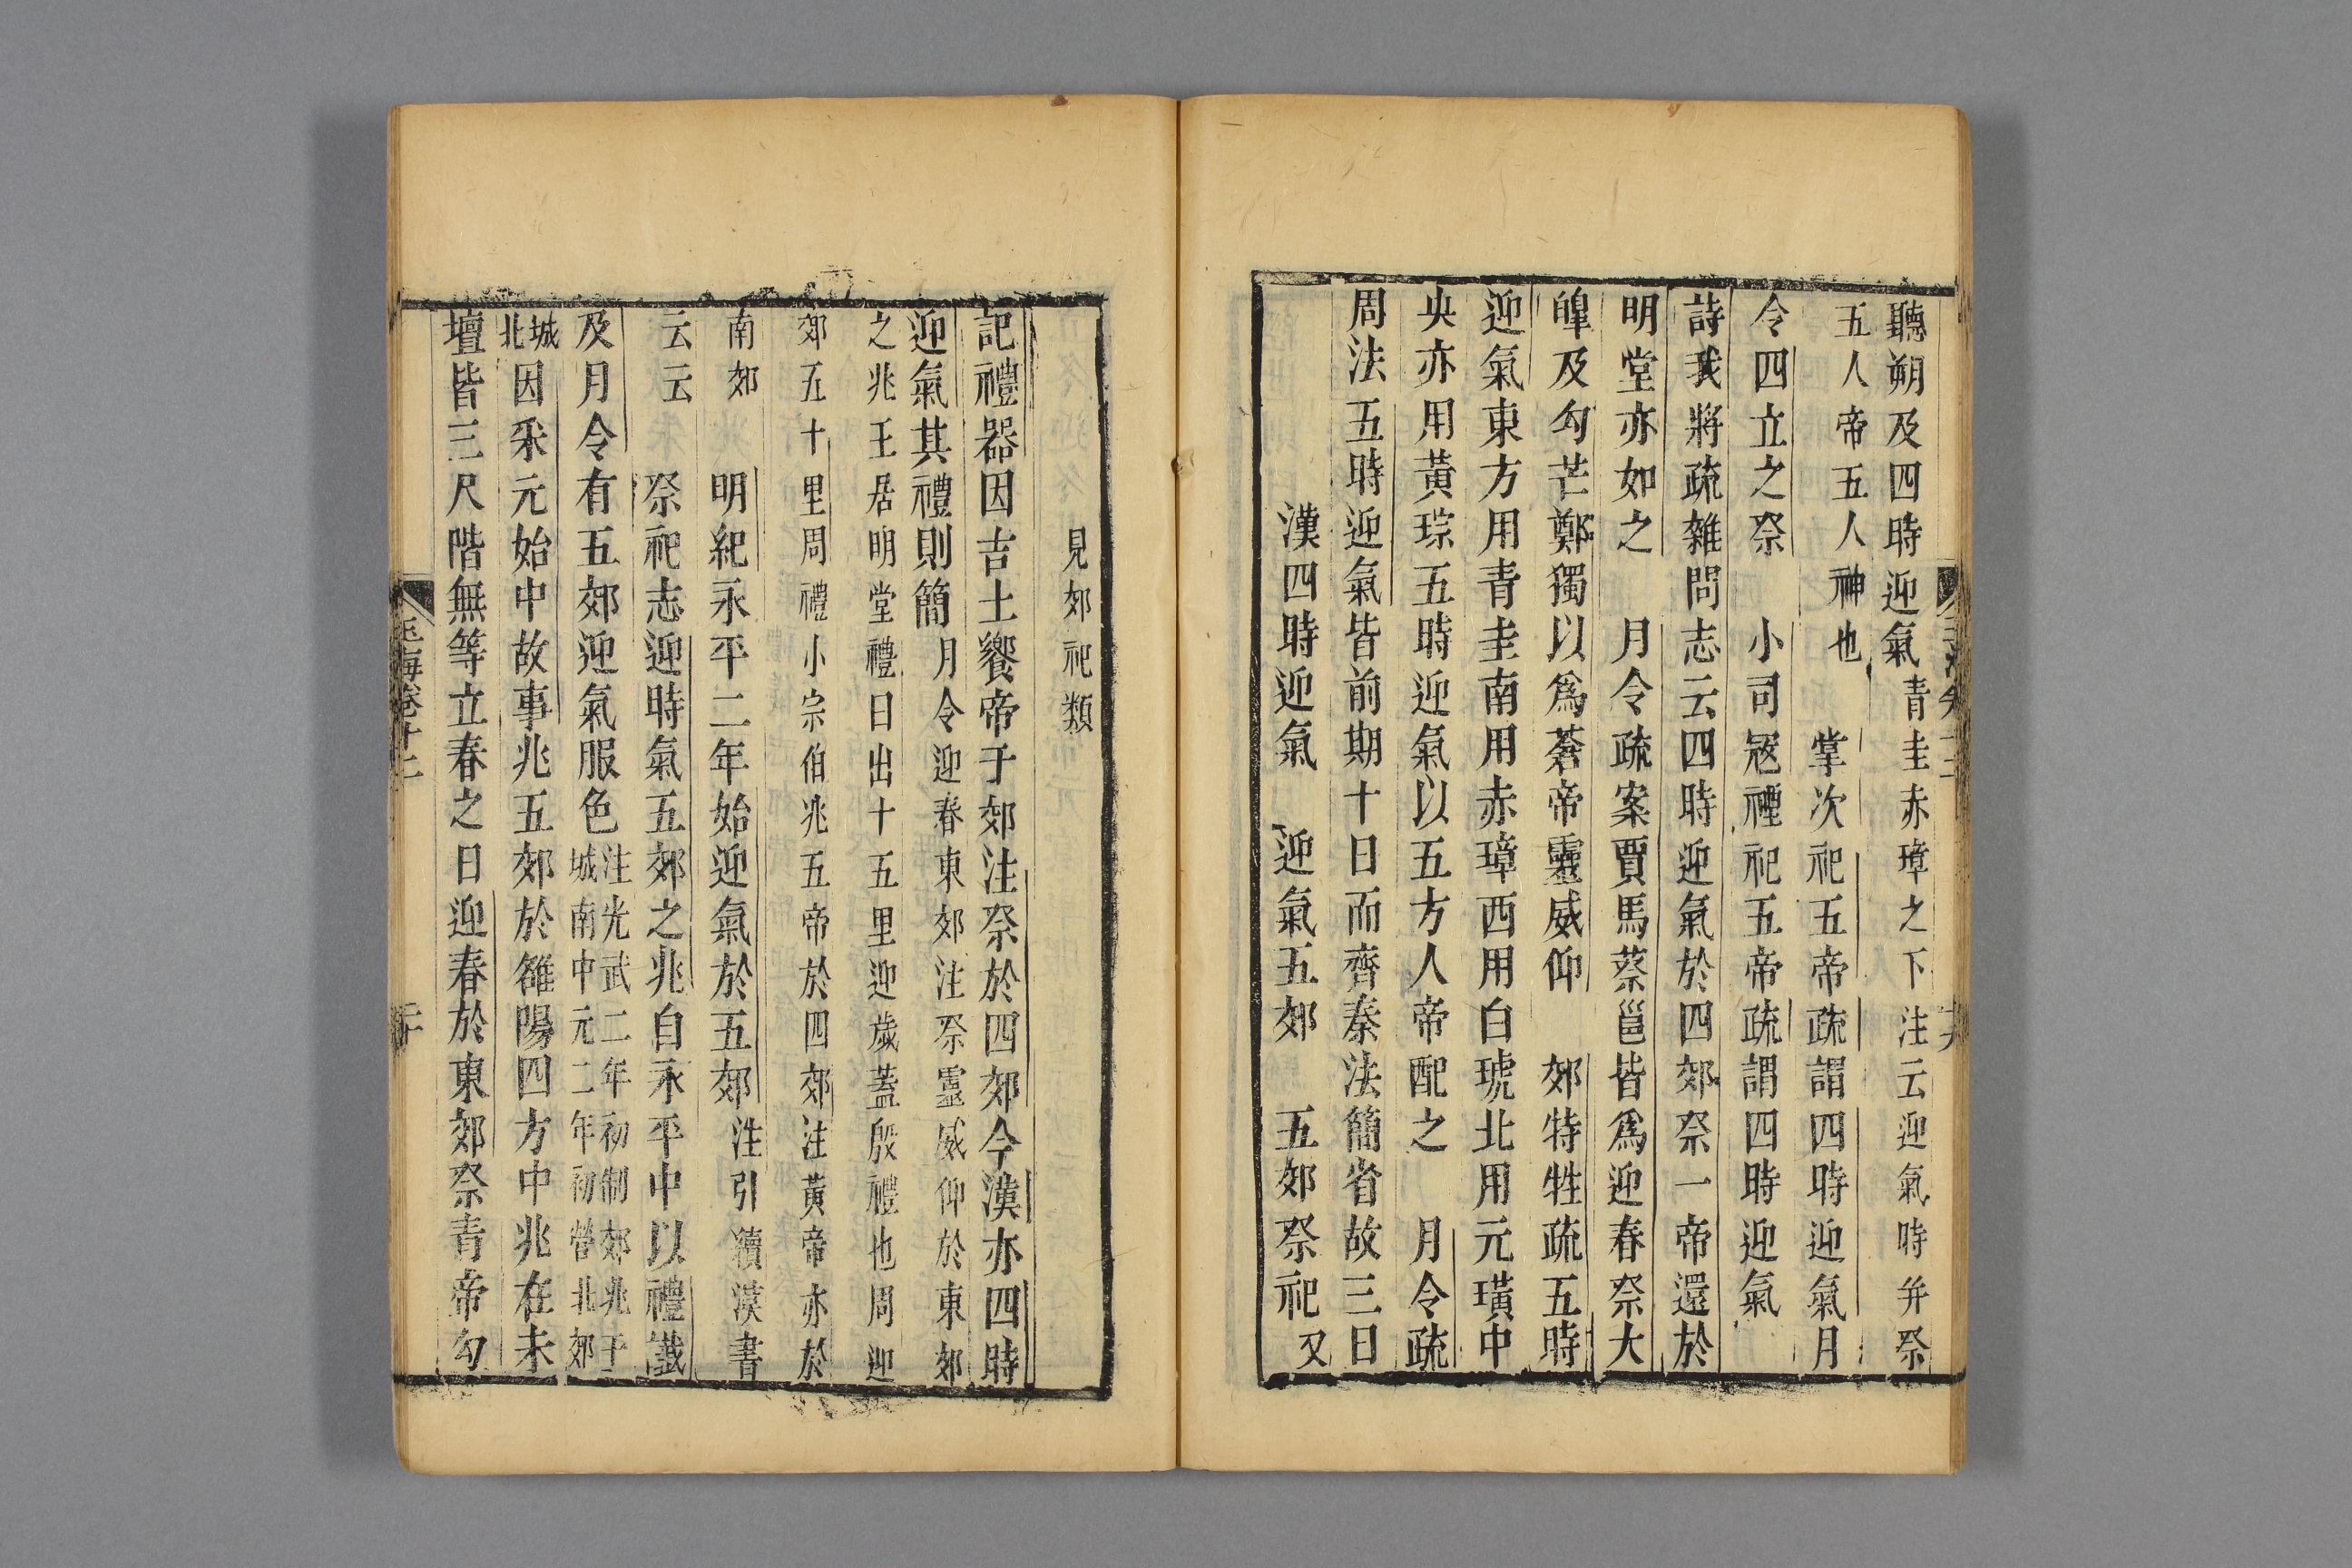 聽朔及四時迎氣青圭赤璋之下注云迎氣時并祭
五人帝五人神也　掌次祀五帝疏謂四時迎氣月
令四立之祭　小司寇禋祀五帝疏謂四時迎氣
詩我將疏雜問志云四時迎氣於四郊祭一帝還於
明堂亦如之　月令疏案賈馬蔡邕皆爲迎春祭大
皥及勾芒鄭獨以爲蒼帝靈威仰　郊特牲疏五時
迎氣東方用青圭南用赤璋西用白琥北用元璜中
央亦用黃琮五時迎氣以五方人帝配之　月令疏
周法五時迎氣皆前期十日而齊秦法簡省故三日
漢四時迎氣　迎氣五郊　五郊祭祀又
見郊祀類
記禮器因吉土饗帝于郊注祭於四郊今漢亦四時
迎氣其禮則簡月令迎春東郊注祭靈威仰於東郊
之兆王居明堂禮日出十五里迎歲蓋殷禮也周迎
郊五十里周禮小宗伯兆五帝於四郊注黃帝亦於
南郊　明紀永平二年始迎氣於五郊注引續漢書
云云　祭祀志迎時氣五郊之兆自永平中以禮讖
及月令有五郊迎氣服色注光武二年初制郊兆于
城南中元二年初營北郊
城
北因采元始中故事兆五郊於雒陽四方中兆在未
壇皆三尺階無等立春之日迎春於東郊祭青帝勾
玉海卷十二
二十